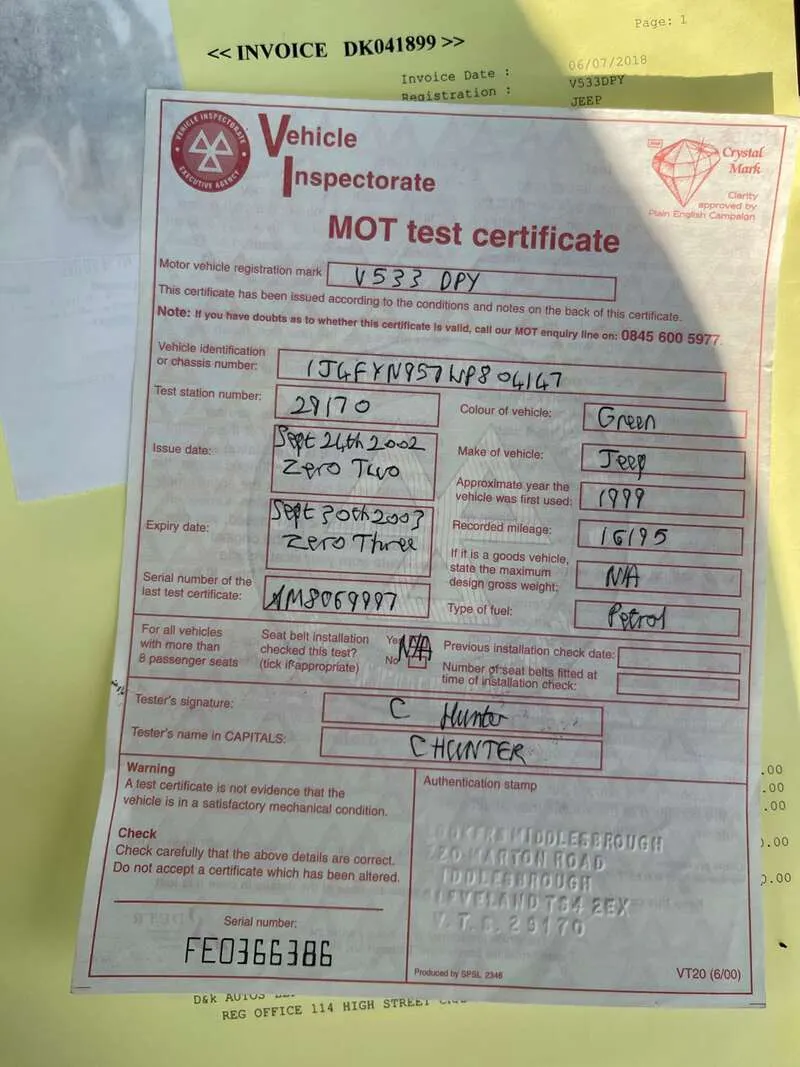 Page: 1
<< INVOICE DK041899 >>
Invoice Date : 06/07/2018
Registration : V533DPY
JEEP
VEHICLE INSPECTORATE
EXECUTIVE AGENCY
Vehicle
Inspectorate
Crystal
Mark
Clarity
approved by
Plain English Campaign
MOT test certificate
Motor vehicle registration mark V533 DPY
This certificate has been issued according to the conditions and notes on the back of this certificate.
Note: If you have doubts as to whether this certificate is valid, call our MOT enquiry line on: 0845 600 5977.
Vehicle identification
or chassis number: 1J4FYN957WP804147
Test station number: 29170
Colour of vehicle: Green
Issue date: Sept 24th 2002
Zero Two
Make of vehicle: Jeep
Approximate year the
vehicle was first used: 1999
Expiry date: Sept 30th 2003
Zero Three
Recorded mileage: 16195
If it is a goods vehicle,
state the maximum
design gross weight: NA
Serial number of the
last test certificate: AM8069997
Type of fuel: Petrol
For all vehicles
with more than
8 passenger seats
Seat belt installation
checked this test?
(tick if appropriate)
Yes
No
N/A
Previous installation check date:
Number of seat belts fitted at
time of installation check:
Tester's signature: C Hunter
Tester's name in CAPITALS: C HUNTER
Warning
A test certificate is not evidence that the
vehicle is in a satisfactory mechanical condition.
Check
Check carefully that the above details are correct.
Do not accept a certificate which has been altered.
Serial number:
FE0366386
Authentication stamp
MIDDLESBROUGH
MARTON ROAD
IDDLESBROUGH
LEVELAND TS4 2EX
V.T.S. 29170
Produced by SPSL 2346
VT20 (6/00)
.00
.00
.00
0.00
0.00
D&K AUTOS
REG OFFICE 114 HIGH STREET